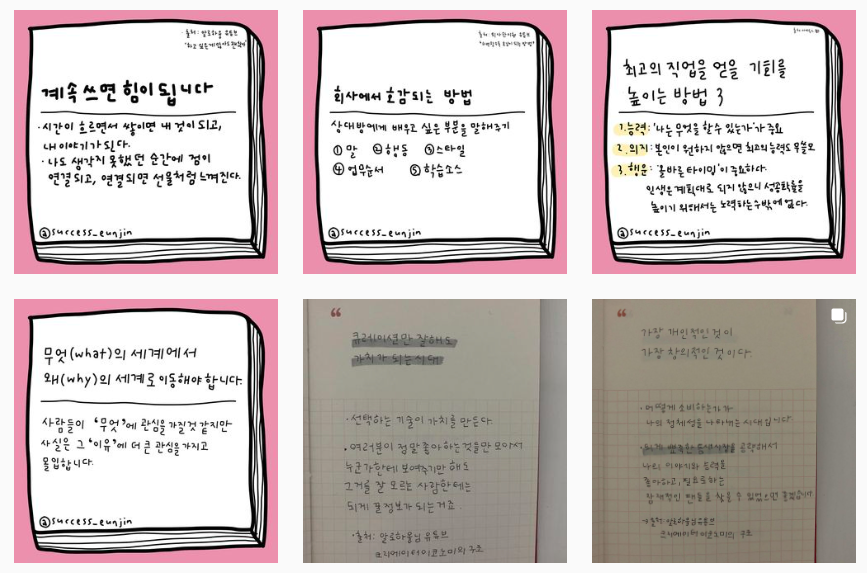 ·출처: 알로하융 유튜브
계속 쓰면 힘이 됩니다
·시간이 흐르면서 쌓이면 내 것이 되고,
내 이야기가 된다.
·나도 생각지 못했던 순간에 점이
연결되고, 연결되면 선물처럼 느껴진다.
@success_eunjin
회사에서 호감되는 방법
상대방에게 배우고 싶은 부분을 말해주기
① 말 ② 행동 ③ 스타일
④ 업무순서 ⑤ 학습소스
@success_eunjin
최고의 직업을 얻을 기회를
높이는 방법 3
1. 능력: '나는 무엇을 할 수 있는가'가 중요
2. 의지: 본인이 원하지 않으면 최고의 능력도 무쓸모
3. 행운: '올바른 타이밍'이 중요하다.
인생은 계획대로 되지 않으니 성공확률을
높이기 위해서는 노력하는 수밖에 없다.
@success_eunjin
무엇(what)의 세계에서
왜(why)의 세계로 이동해야 합니다.
사람들이 '무엇'에 관심을 가질것 같지만
사실은 그 '이유'에 더 큰 관심을 가지고
몰입합니다.
@success_eunjin
❝
큐레이션만 잘해도
가치가 되는 시대
·선택하는 기술이 가치를 만든다.
·여러분이 정말 좋아하는 것들만 모아서
누군가한테 보여주기만 해도
그거를 잘 모르는 사람한테는
되게 큰 정보가 되는거죠.
·출처: 알로하융님 유튜브
크리에이터 이코노미의 구조
❝
가장 개인적인 것이
가장 창의적인 것이다.
·어떻게 소비하는가가
나의 정체성을 나타내는 시대입니다.
공략해서
나의 이야기와 능력을
좋아하고, 필요로 하는
잠재적인 팬들을 찾을 수 있었으면 좋겠습니다
출처: 알로하융님 유튜브
크리에이터 이코노미의 구조